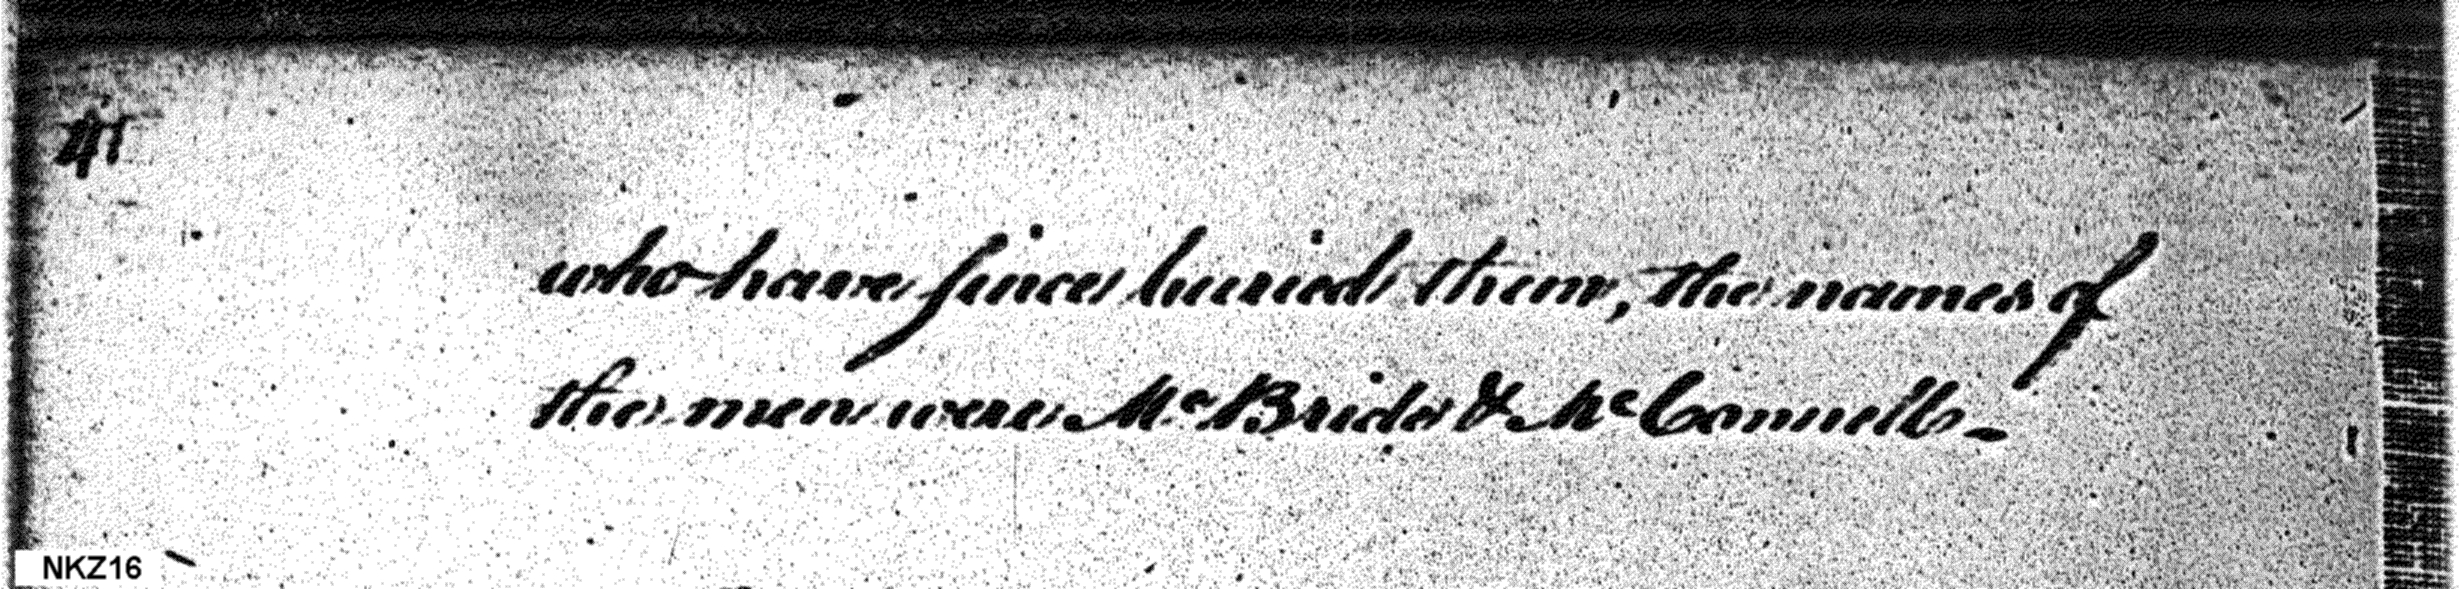 41
who have since buried them, the names of
the men were McBride & McConnell –
NKZ16